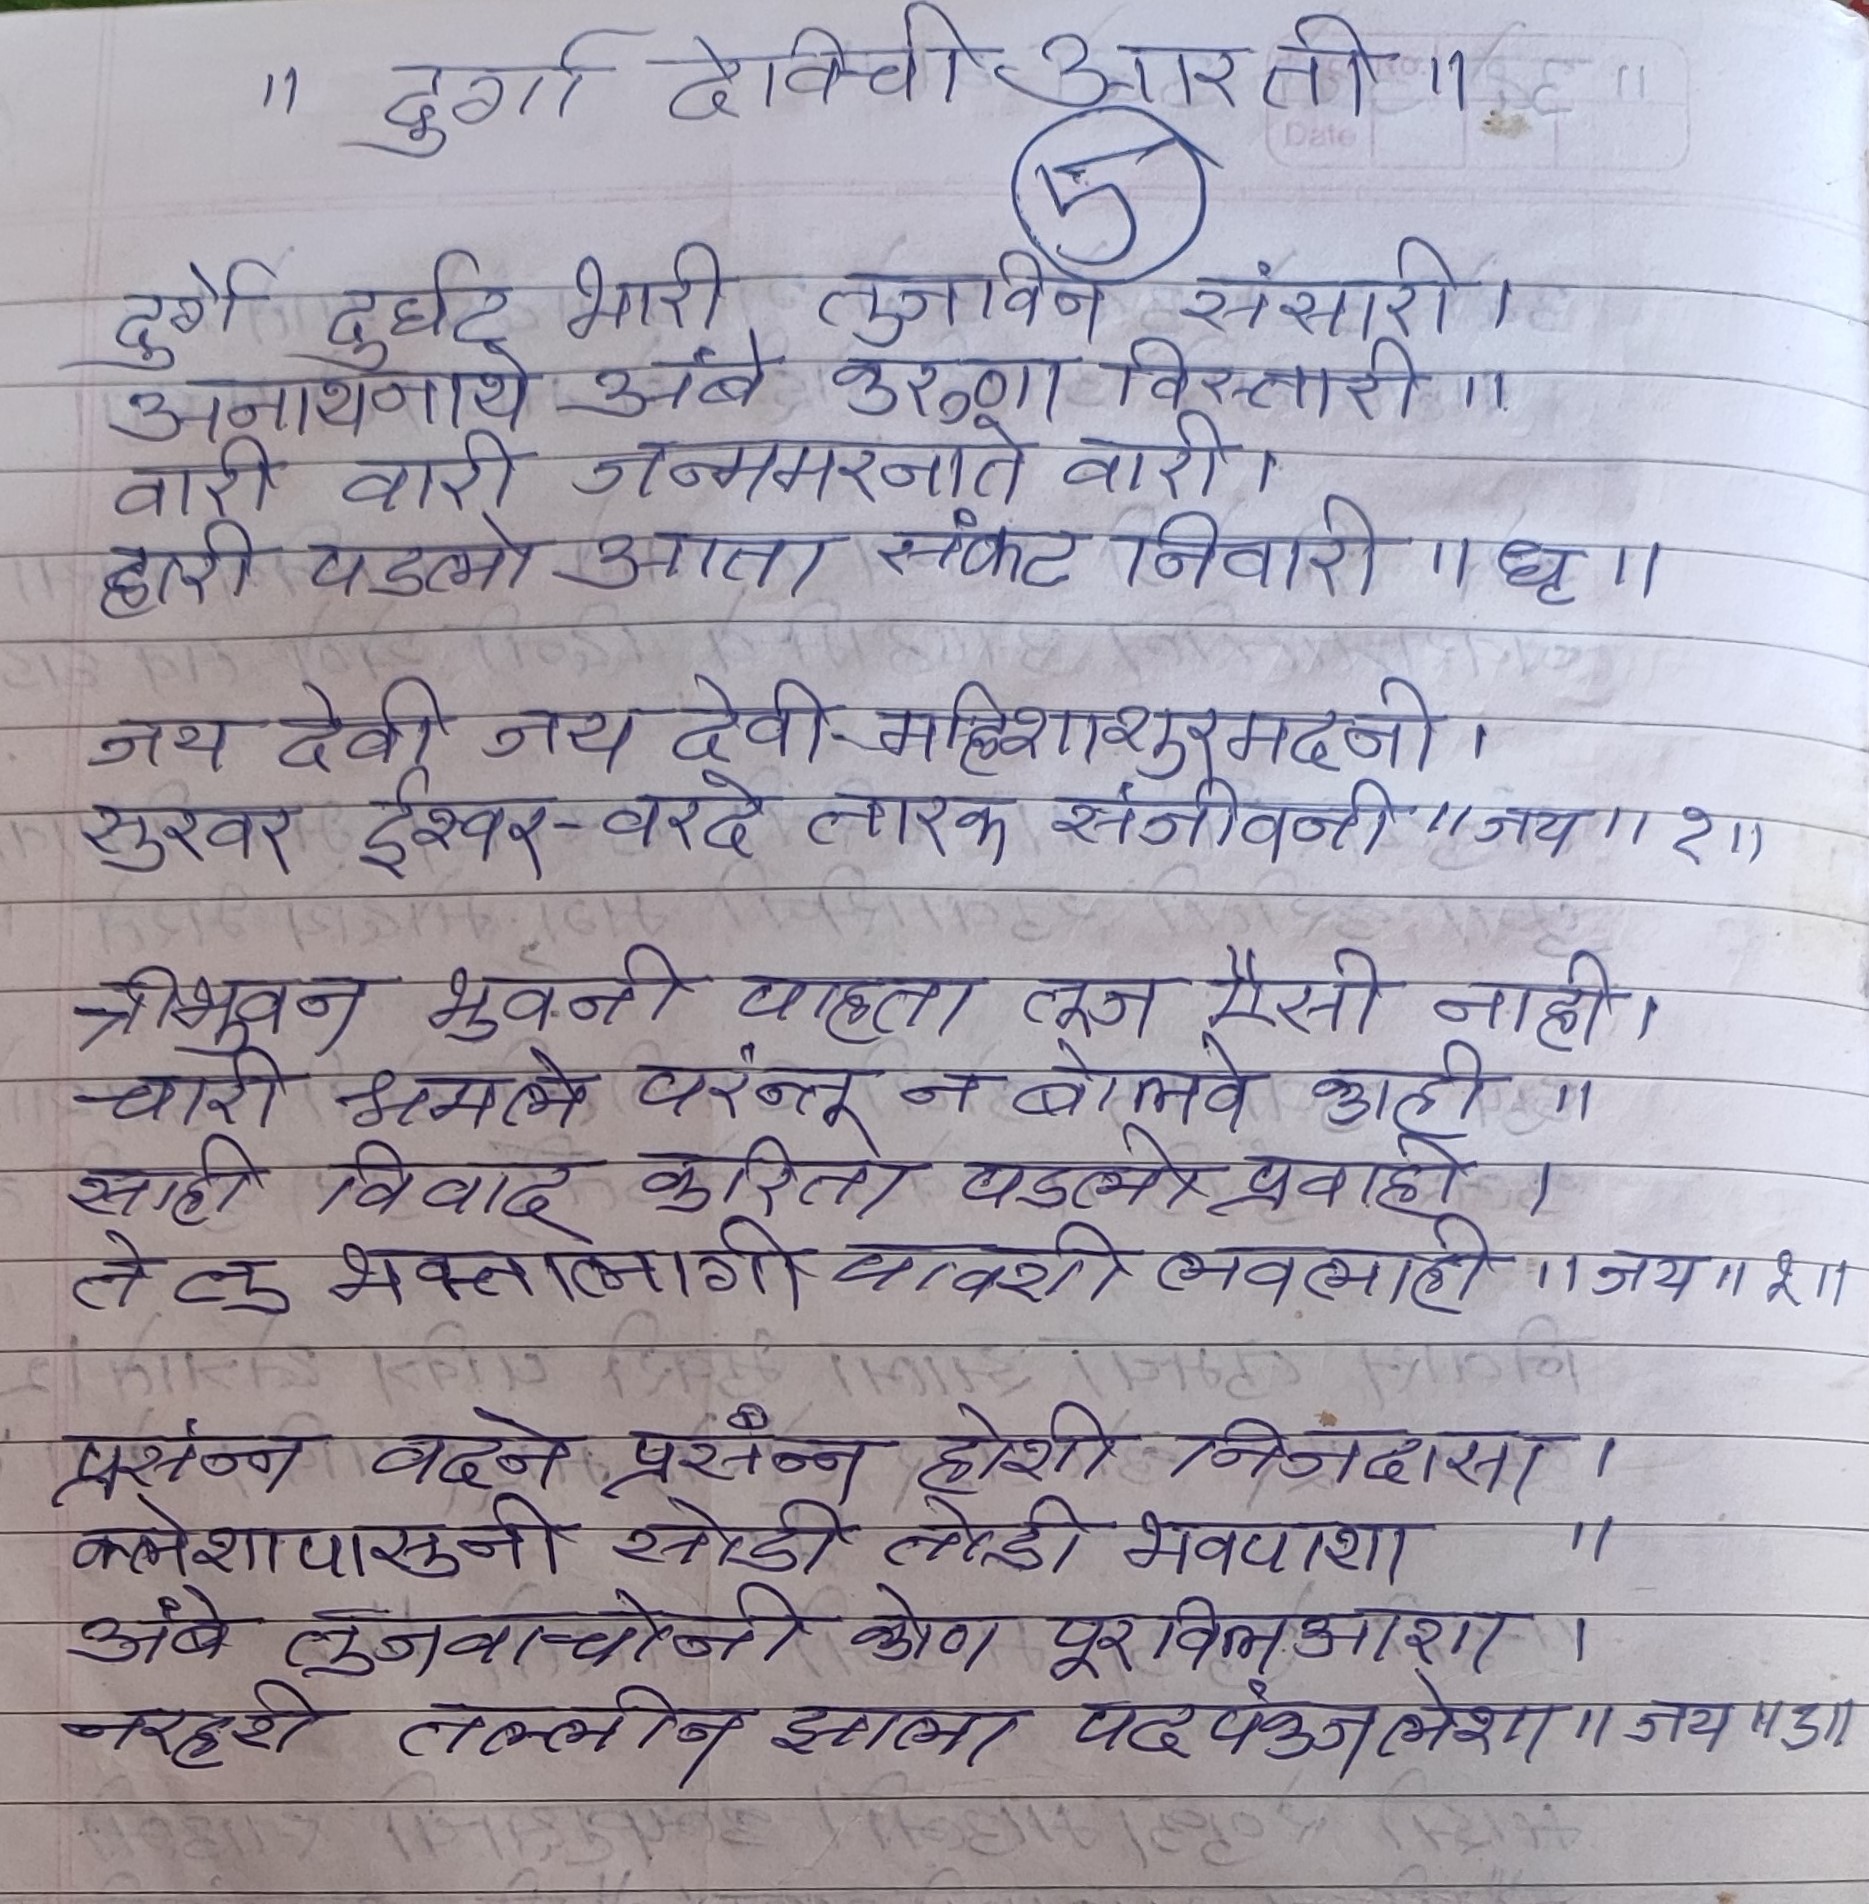 ॥ दुर्गा देविची आरती ॥
5
दुर्गे दुर्घट भारी तुजविन संसारी ।
अनाथनाथे अंबे करुणा विस्तारी ॥
वारी वारी जन्ममरनाते वारी ।
हारी पडलो आता संकट निवारी ॥ धृ ॥
जय देवी जय देवी महिशाशुरमदनी ।
सुरवर ईश्वर-वरदे तारक संजीवनी ॥ जय ॥ १ ॥
त्रीभुवन भुवनी पाहता तूज ऐसी नाही ।
चारी श्रमले परंन्तू न बोलवे काही ॥
साही विवाद करिता पडलो प्रवाही ।
ते तु भक्तालागी पावशी लवलाही ॥ जय ॥ २ ॥
प्रसंन्न वदने प्रसंन्न होशी निजदासा ।
क्लेशापासुनी सोडी तोडी भवपाशा ॥
अंबे तुजवाचोनी कोण पूरविल आशा ।
नरहरी तल्लीन झाला पदपंकजलेशा ॥ जय ॥ ३ ॥